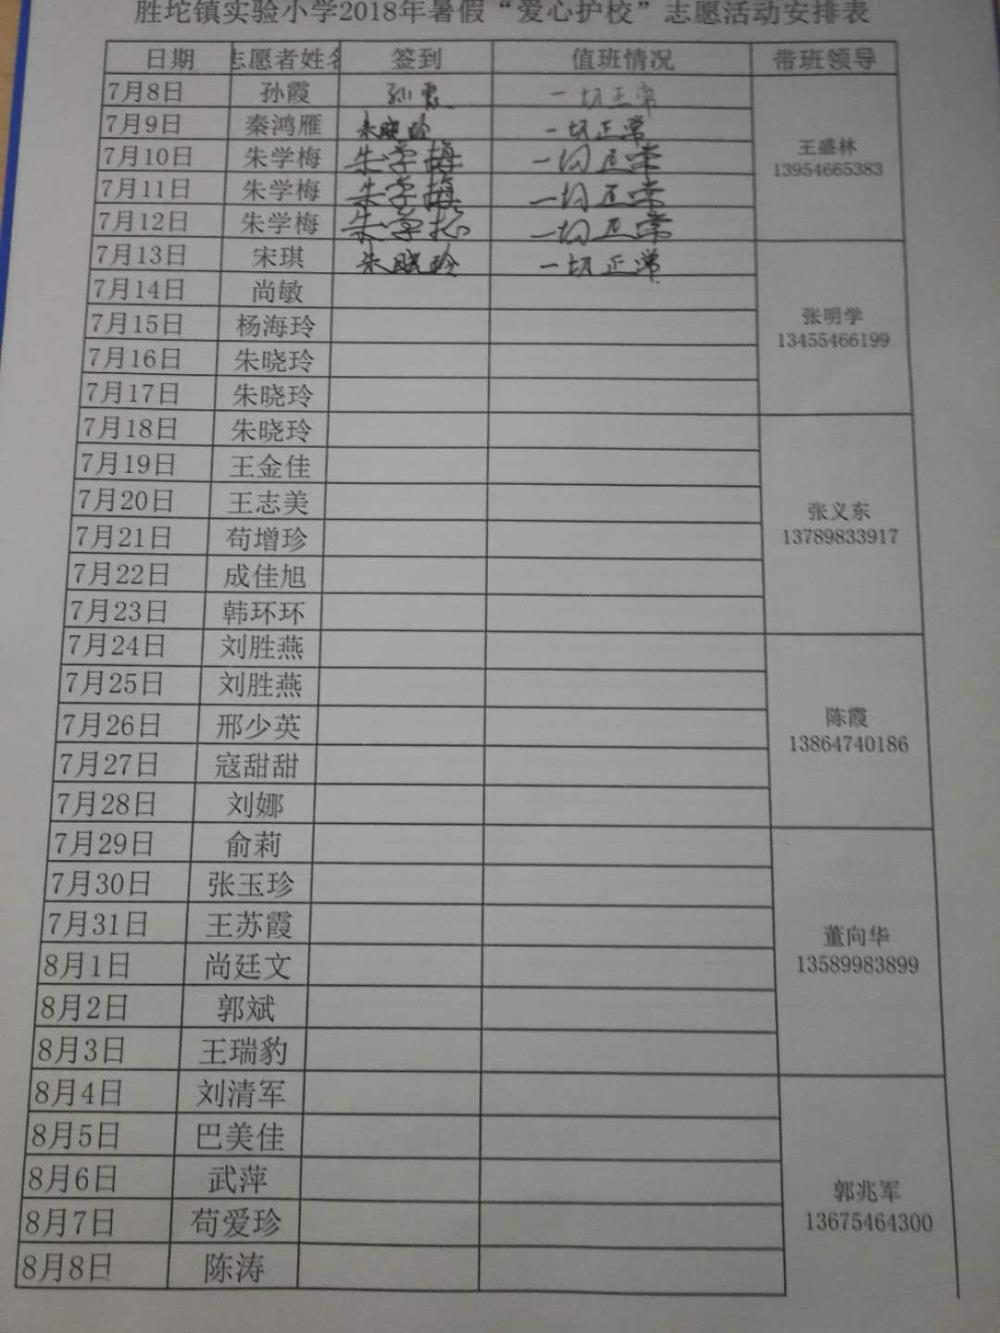 胜坨镇实验小学2018年暑假“爱心护校”志愿活动安排表
日期 志愿者姓名 签到 值班情况 带班领导
7月8日 孙霞 孙霞 一切正常
7月9日 秦鸿雁 朱晓玲 一切正常 王盛林
7月10日 朱学梅 朱学梅 一切正常 13954665383
7月11日 朱学梅 朱学梅 一切正常
7月12日 朱学梅 朱学梅 一切正常
7月13日 宋琪 朱晓玲 一切正常
7月14日 尚敏
7月15日 杨海玲 张明学
7月16日 朱晓玲 13455466199
7月17日 朱晓玲
7月18日 朱晓玲
7月19日 王金佳
7月20日 王志美 张义东
7月21日 苟增珍 13789833917
7月22日 成佳旭
7月23日 韩环环
7月24日 刘胜燕
7月25日 刘胜燕
7月26日 邢少英 陈霞
7月27日 寇甜甜 13864740186
7月28日 刘娜
7月29日 俞莉
7月30日 张玉珍
7月31日 王苏霞 董向华
8月1日 尚廷文 13589983899
8月2日 郭斌
8月3日 王瑞豹
8月4日 刘清军
8月5日 巴美佳
8月6日 武萍 郭兆军
8月7日 苟爱珍 13675464300
8月8日 陈涛